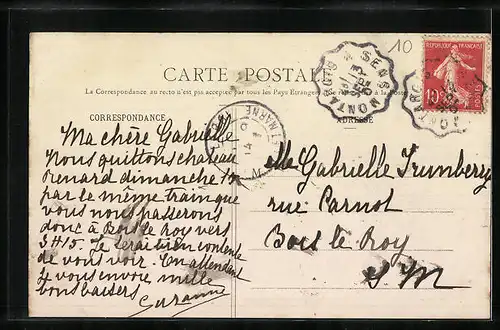 10
CARTE POSTALE
La Correspondance au recto n'est pas acceptée par tous les Pays Etrangers
à la Poste
CORRESPONDANCE
ADRESSE
Ma chère Gabrielle
Nous quittons chateau
Renard dimanche
par le même train que
vous nous passerons
donc à Bois le Roy vers
3H15. Je serai bien contente
de vous voir. En attendant
je vous envoie mille
bons baisers
Suzanne
Mlle Gabrielle
rue Carnot
Bois le Roy
S M
SENS
MONTARGIS
ET MARNE
REPUBLIQUE FRANÇAISE
10
POSTES